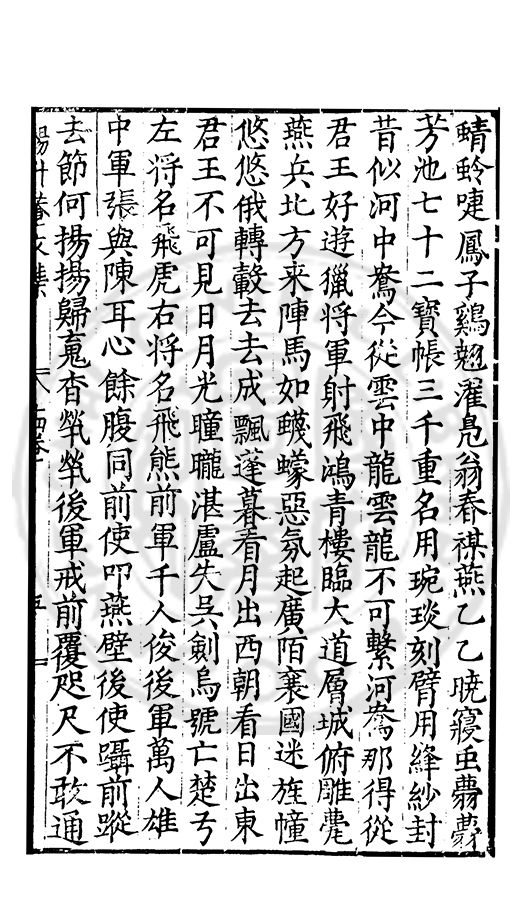 蜻蛉啑鳳子鷄翹濯鳧翁春禖燕乙乙曉寢虫薨薨
芳池七十二寶帳三千重名用琬琰刻臂用絳紗封
昔似河中鴦今從雲中龍雲龍不可繫河鴦那得從
君王好遊獵將軍射飛鴻青樓臨大道層城俯雕甍
燕兵北方来陣馬如蠛蠓惡氛起廣陌襄國迷旌幢
悠悠俄轉轂去去成飄蓬暮看月出西朝看日出東
君王不可見日月光曈曨湛盧失吳劍烏號亡楚弓
左將名飛虎右將名飛熊前軍千人俊後軍萬人雄
中軍張與陳耳心餘腹同前使叩燕壁後使躡前蹤
去節何揚揚歸䰟杳煢煢後軍戒前覆咫尺不敢通
楊升菴文集 八 五